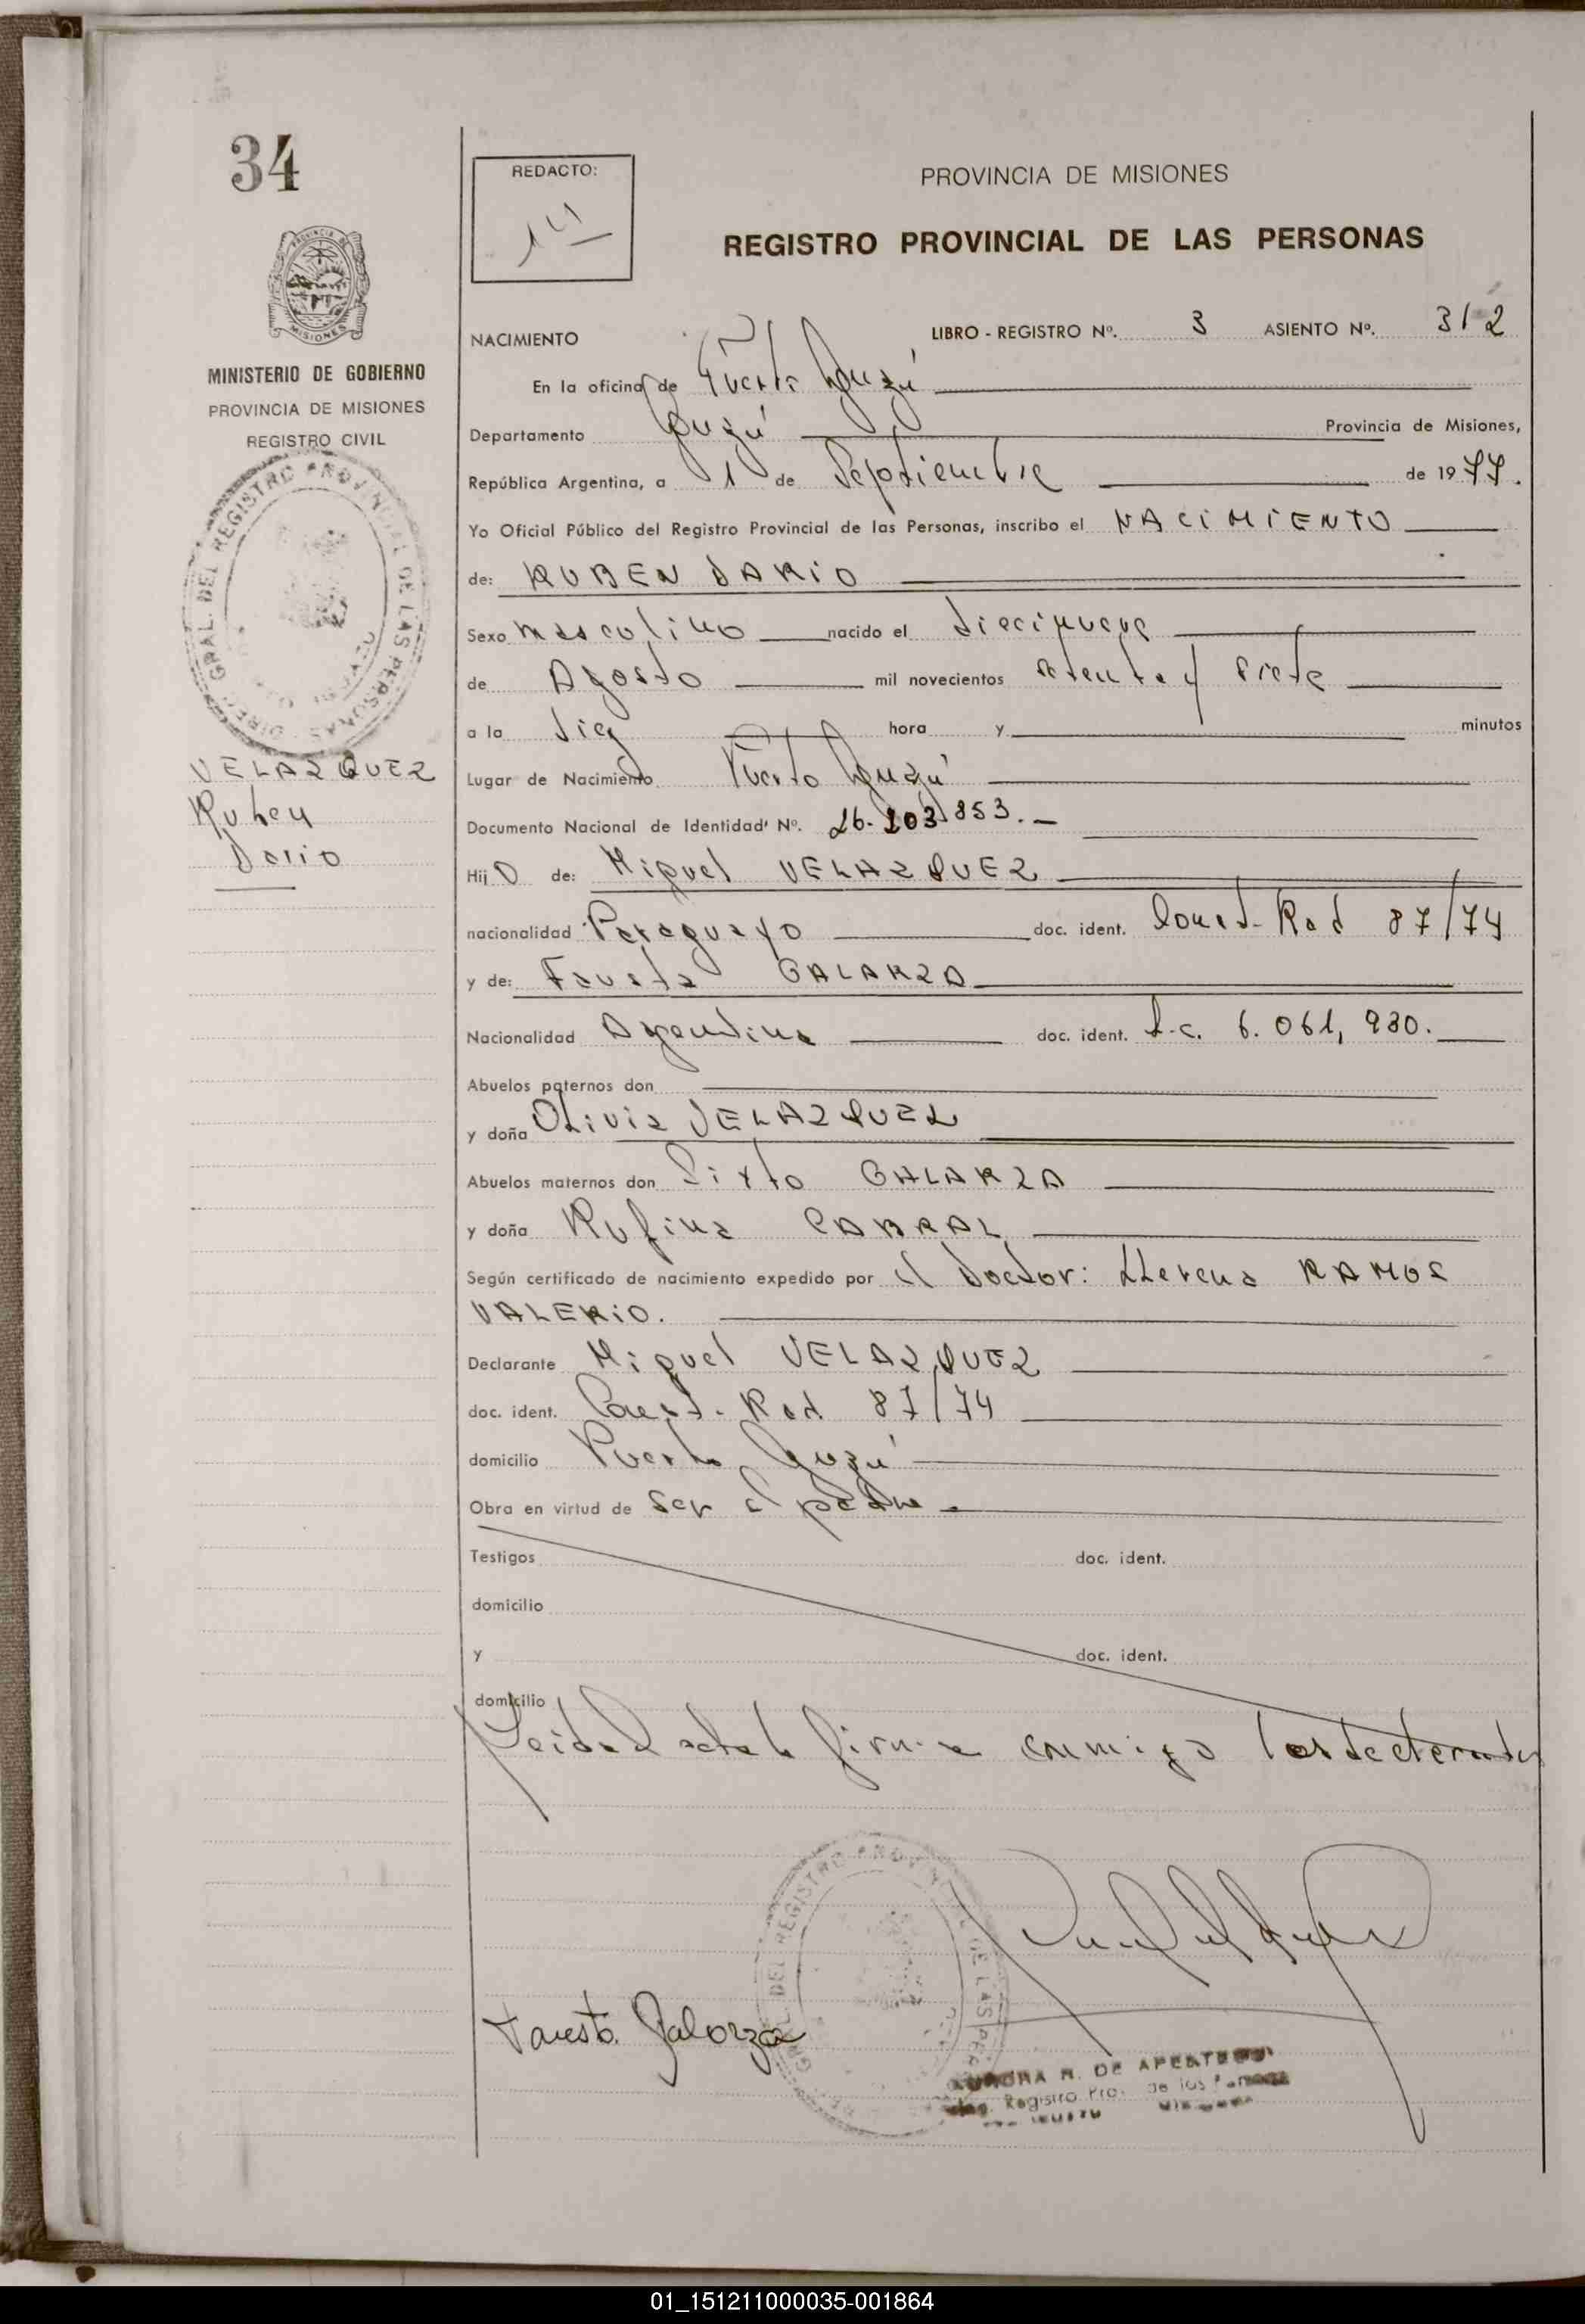 34
REDACTO:
PROVINCIA DE MISIONES
REGISTRO PROVINCIAL DE LAS PERSONAS
PROVINCIA DE
MISIONES
MINISTERIO DE GOBIERNO
PROVINCIA DE MISIONES
REGISTRO CIVIL
DIREC. GRAL. DEL REGISTRO PROVINCIAL DE LAS PERSONAS
VELAZQUEZ
Ruben
Dario
NACIMIENTO LIBRO - REGISTRO Nº. 3 ASIENTO Nº. 312
En la oficina de Puerto Iguazú
Departamento Iguazú Provincia de Misiones,
República Argentina, a 1 de Septiembre de 1977.
Yo Oficial Público del Registro Provincial de las Personas, inscribo el NACIMIENTO
de: RUBEN DARIO
Sexo masculino nacido el diecinueve
de Agosto mil novecientos setenta y siete
a la diez hora y minutos
Lugar de Nacimiento Puerto Iguazú
Documento Nacional de Identidad Nº. 26.203.853.-
Hij o de: Miguel VELAZQUEZ
nacionalidad Paraguayo doc. ident. Const. Rad 87/74
y de: Fausta GALARZA
Nacionalidad Argentina doc. ident. L.c. 6.061,930.
Abuelos paternos don
y doña Olivia VELAZQUEZ
Abuelos maternos don Sixto GALARZA
y doña Rufina CABRAL
Según certificado de nacimiento expedido por el Doctor: Llerena RAMOS
VALERIO.
Declarante Miguel VELAZQUEZ
doc. ident. Const. Rad. 87/74
domicilio Puerto Iguazú
Obra en virtud de ser el padre.
Testigos doc. ident.
domicilio
y doc. ident.
domicilio
Leida el acta la firma conmigo los declarantes
DEL REGISTRO PROVINCIAL DE LAS PER
Fausta Galarza
AURORA M. DE
Registro Pro. de las
01_151211000035-001864